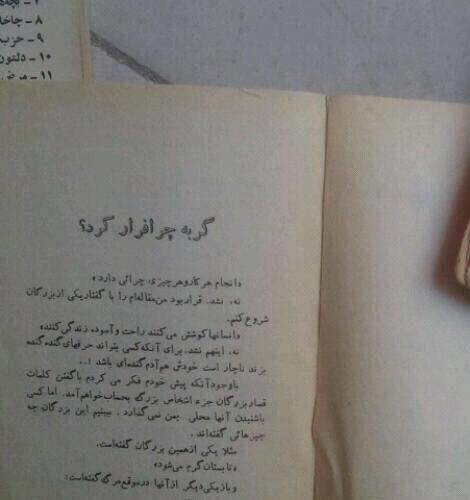 ۸ - چاخا
۹ - حزب
۱۰ - دلتون
۱۱ - مرض
گربه چرا فرار کرد؟
«انجام هر کار و هر چیزی، چرائی دارد»
نه، نشد. قرار بود من مقاله‌ام را با گفتار یکی از بزرگان
شروع کنم.
«انسانها کوشش می کنند راحت و آسوده زندگی کنند»
نه، اینهم نشد. برای آنکه کسی بتواند حرفهای گنده گنده
بزند ناچار است خودش هم آدم گنده‌ای باشد !..
باوجود آنکه پیش خودم فکر می کردم باگفتن کلمات
قصار بزرگان جزء اشخاص بزرگ بحساب خواهم آمد. اما کسی
باشنیدن آنها محلی بمن نمی‌گذارد. ببینیم این بزرگان چه
چیزهائی گفته‌اند.
مثلا یکی از همین بزرگان گفته‌است.
«تابستان گرم می‌شود»
و بازیکی دیگر از آنها در موقع مرگ گفته‌است: